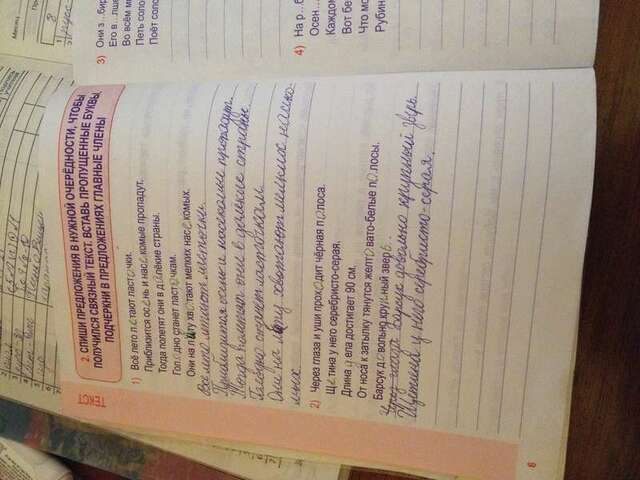 Место
ТЕКСТ
2. СПИШИ ПРЕДЛОЖЕНИЯ В НУЖНОЙ ОЧЕРЁДНОСТИ, ЧТОБЫ
ПОЛУЧИЛСЯ СВЯЗНЫЙ ТЕКСТ. ВСТАВЬ ПРОПУЩЕННЫЕ БУКВЫ,
ПОДЧЕРКНИ В ПРЕДЛОЖЕНИЯХ ГЛАВНЫЕ ЧЛЕНЫ
1) Всё лето летают ласточки.
Приблизится осень и насекомые пропадут.
Тогда полетят они в далёкие страны.
Голодно станет ласточкам.
Они на лету хватают мелких насекомых.
Все лето летают ласточки.
Приблизится осень и насекомые пропадут.
Тогда полетят они в далекие страны.
Голодно станет ласточкам.
Они на лету хвотают мелких насеко-
мых.
2) Через глаза и уши проходит чёрная полоса.
Щетина у него серебристо-серая.
Длина тела достигает 90 см.
От носа к затылку тянутся желтовато-белые полосы.
Барсук довольно крупный зверь.
Через глаза Барсук довольно крупный зверь.
Щетина у него серебристо-серая.
6
3) Они з...бир
Его в...лше
Во всём ми
Петь соло
Поёт солов
4) На р...б
Осен...
Каждо
Вот бе
Что мо
Рубин